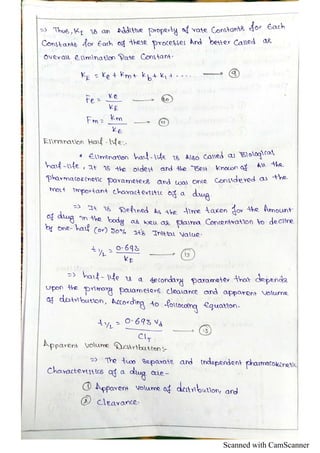 => Thus, KE is an Additive property of rate Constants for Each
Constants for Each of these processes And better Called as
Overall Elimination Rate Constant.
KE = Ke + Km + Kb + Kl + ..... → ⑨
Fe = Ke / KE → ⑩
Fm = Km / KE → ⑪
Elimination Half-life:-
* Elimination half-life is Also Called as Biological
half-life, It is the oldest and the Best known of All the
pharmacokinetic parameters and was once Considered as the
most Important characteristic of a drug
=> It is Defined As the time taken for the Amount
of drug in the body as well as plasma Concentration to decline
by one-half (or) 50% It's Initial Value.
t½ = 0.693 / KE → ⑫
=> half-life is a secondary parameter that depends
upon the primary parameters clearance and apparent volume
of distribution, According to following Equation.
t½ = 0.693 Vd / ClT → ⑬
Apparent Volume Distribution:-
=> The two separate and Independent pharmacokinetic
Characteristics of a drug are-
① Apparent volume of distribution, and
② Clearance.
Scanned with CamScanner